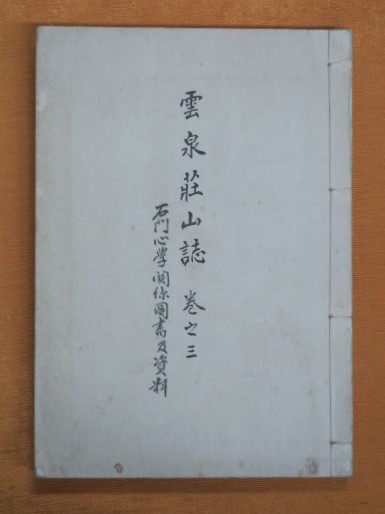 雲泉莊山誌 巻之三
石門心學関係圖書及資料